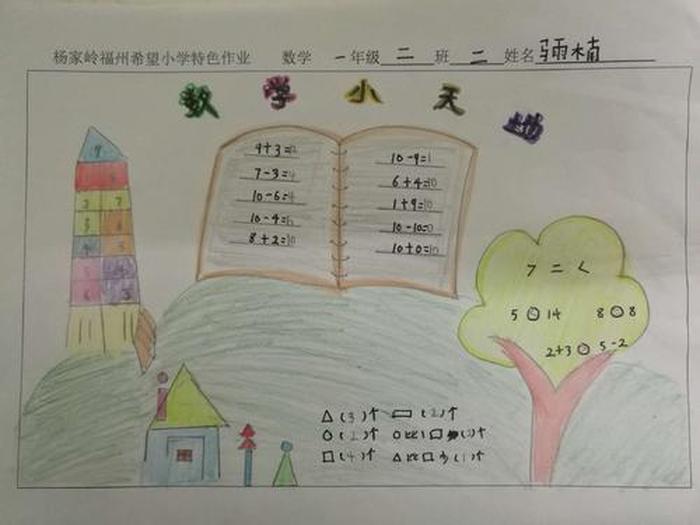 杨家岭福州希望小学特色作业 数学 一年级 二 班 二 姓名 楠
数 学 小 天
9+3=12
7-3=4
10-6=4
10-4=6
8+2=10
10-9=1
6+4=10
1+9=10
10-10=0
10+0=10
7 = <
5 14 8 8
2+3 5-2
△(3)个 ▭(2)个
○(2)个 ○比□ (2)个
□(4)个 △比□少(1)个